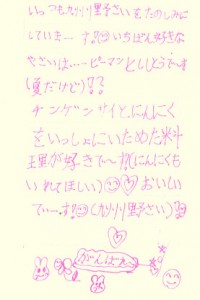 いっつも九州野さいをたのしみに
していまーす!いちばん好きな
やさいは……ピーマンとしょうです
(夏だけど)??
チンゲンサイと、にんにく
をいっしょにいためた料
理が好きで〜す!(にんにくも
いれてほしい)おいしい
でーーす!(九州野さい)
がんばれ